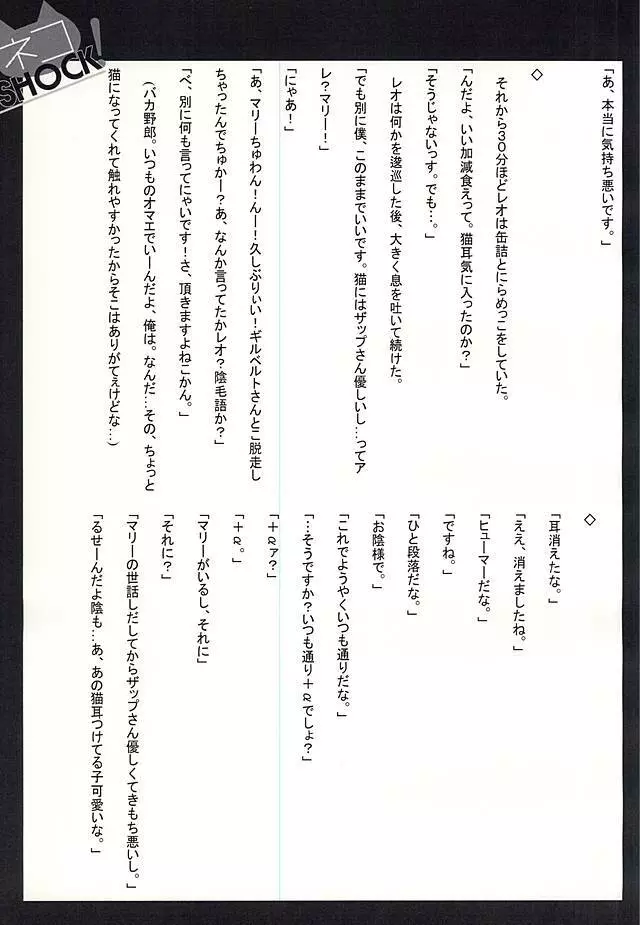 ネコ
SHOCK!
「あ、本当に気持ち悪いです。」
◇
それから30分ほどレオは缶詰とにらめっこをしていた。
「んだよ、いい加減食えって。猫耳気に入ったのか？」
「そうじゃないっす。でも…。」
レオは何かを逡巡した後、大きく息を吐いて続けた。
「でも別に僕、このままでいいです。猫にはザップさん優しいし…ってア
レ？マリー！」
「にゃあ！」
「あ、マリーちゅわん！んー！久しぶりぃい！ギルベルトさんとこ脱走し
ちゃったんでちゅかー？あ、なんか言ってたかレオ？陰毛語か？」
「べ、別に何も言ってにゃいです！さ、頂きますよねこかん。」
（バカ野郎。いつものオマエでいーんだよ、俺は。なんだ…その、ちょっと
猫になってくれて触れやすかったからそこはありがてぇけどな…）
◇
「耳消えたな。」
「ええ、消えましたね。」
「ヒューマーだな。」
「ですね。」
「ひと段落だな。」
「お陰様で。」
「これでようやくいつも通りだな。」
「…そうですか？いつも通り＋αでしょ？」
「＋αァ？」
「＋α。」
「マリーがいるし、それに」
「それに？」
「マリーの世話しだしてからザップさん優しくてきもち悪いし。」
「るせーんだよ陰も…あ、あの猫耳つけてる子可愛いな。」